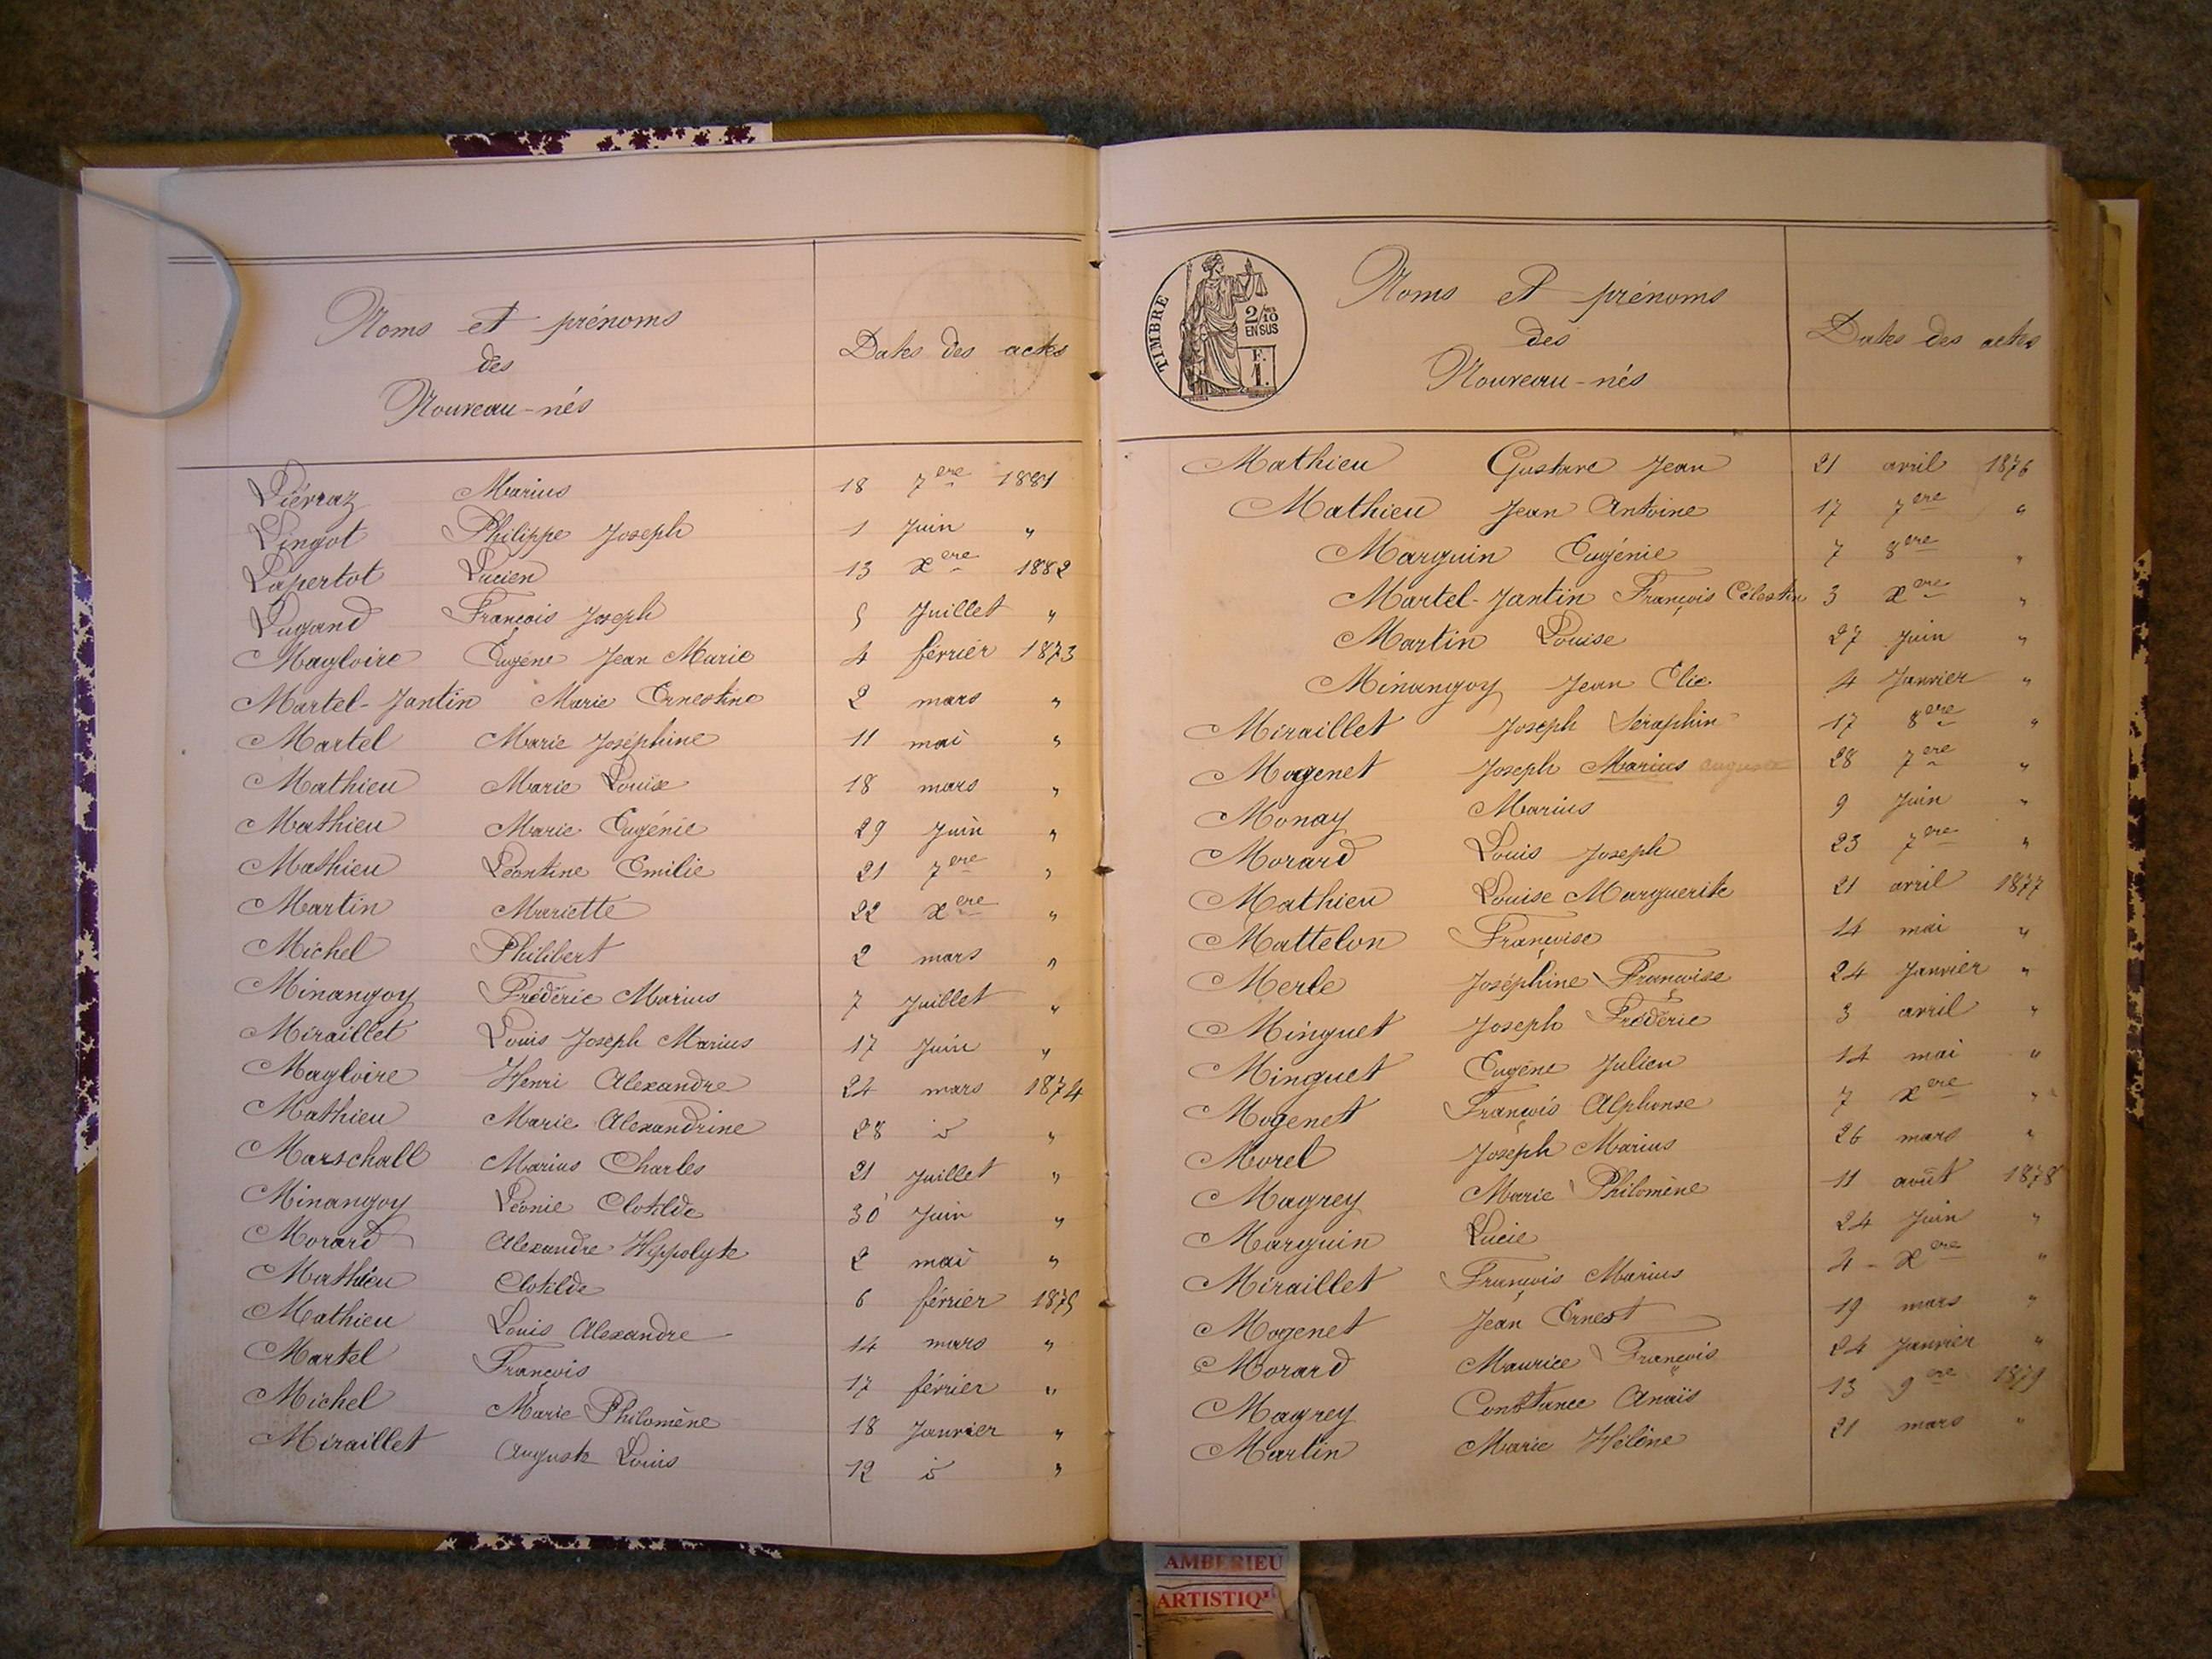 Noms et prénoms
des
Nouveau-nés
Dates des actes
Liévraz Marius 18 7ere 1881
Lingot Philippe Joseph 1 Juin "
Lapertot Lucien 13 Xere 1882
Lugand François Joseph 5 Juillet "
Magloire Eugéne Jean Marie 4 février 1873
Martel-Jantin Marie Ernestine 2 mars "
Martel Marie Joséphine 11 mai "
Mathieu Marie Louise 18 mars "
Mathieu Marie Eugénie 29 Juin "
Mathieu Léontine Emilie 21 7ere "
Martin Mariette 22 Xere "
Michel Philibert 2 mars "
Minangoy Frédéric Marius 7 Juillet "
Miraillet Louis Joseph Marius 17 Juin "
Magloire Henri Alexandre 24 mars 1874
Mathieu Marie Alexandrine 28 id "
Marschall Marius Charles 21 Juillet "
Minangoy Léonie Clotilde 30 Juin "
Morard Alexandre Hippolyte 2 mai "
Mathieu Clotilde 6 février 1875
Mathieu Louis Alexandre 14 mars "
Martel François 17 février "
Michel Marie Philomène 18 Janvier "
Miraillet Auguste Louis 12 id "
TIMBRE
2/10
EN SUS
F.
1.
Noms et prénoms
des
Nouveau-nés
Dates des actes
Mathieu Gustave Jean 21 avril 1876
Mathieu Jean Antoine 17 7ere "
Marguin Eugénie 7 8ere "
Martel-Jantin François Célestin 3 Xere "
Martin Louise 27 Juin "
Minangoy Jean Elie 4 Janvier "
Miraillet Joseph Séraphin 17 8ere "
Mogenet Joseph Marius auguste 28 7ere "
Monay Marius 9 Juin "
Morard Louis Joseph 23 7ere "
Mathieu Louise Marguerite 21 avril 1877
Mattelon Françoise 14 mai "
Merle Joséphine Françoise 24 Janvier "
Minguet Joseph Frédéric 3 avril "
Minguet Eugéne Julien 14 mai "
Mogenet François Alphonse 7 Xere "
Morel Joseph Marius 26 mars "
Magrey Marie Philomène 11 août 1878
Marguin Lucie 24 Juin "
Miraillet François Marius 4 - Xere "
Mogenet Jean Ernest 19 mars "
Morard Maurice François 24 Janvier "
Magrey Constance Anaïs 13 9ere 1879
Martin Marie Hélène 21 mars "
AMBERIEU
ARTISTIQU